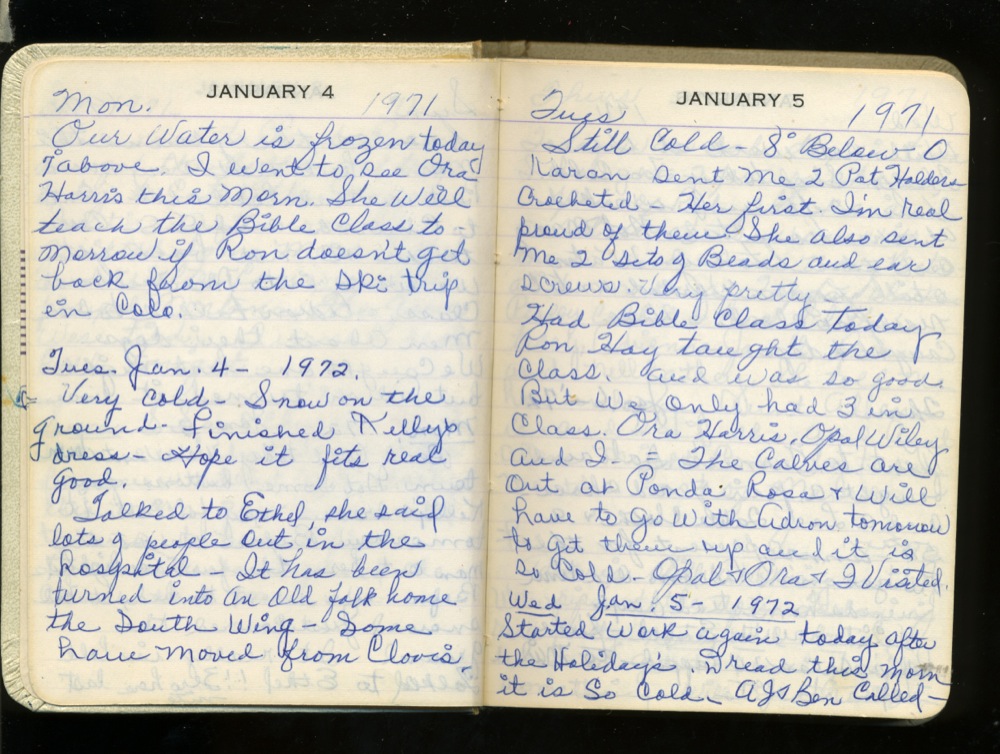 JANUARY 4
Mon. 1971
Our Water is frozen today
7 above. I went to see Ora
Harris this Morn. She Will
teach the Bible Class to-
Morrow if Ron doesn't get
back from the ski trip
in Colo.
Tues. Jan. 4 - 1972.
Very cold - Snow on the
ground - finished Kellys
dress - Hope it fits real
good.
Talked to Ethel, she said
lots of people out in the
Hospital - It has been
turned into an Old folk home
the South Wing - Some
have moved from Clovis.
JANUARY 5
Tues 1971
Still Cold - 8° Below O
Karan sent Me 2 Pot Holders
Crocheted - Her first. I'm real
proud of them. She also sent
Me 2 sets of Beads and ear
screws. Very pretty
Had Bible Class today
Ron Hay taught the
Class. and was so good.
But We only had 3 in
Class. Ora Harris, Opal Wiley
and I - = The Calves are
Out at Ponda Rosa & Will
have to go With Adron tomorrow
to get them up and it is
so Cold - Opal & Ora & I Visited.
Wed Jan. 5 - 1972
Started Work again today after
the Holidays Dread this Morn
it is So Cold - AJ & Ben Called -